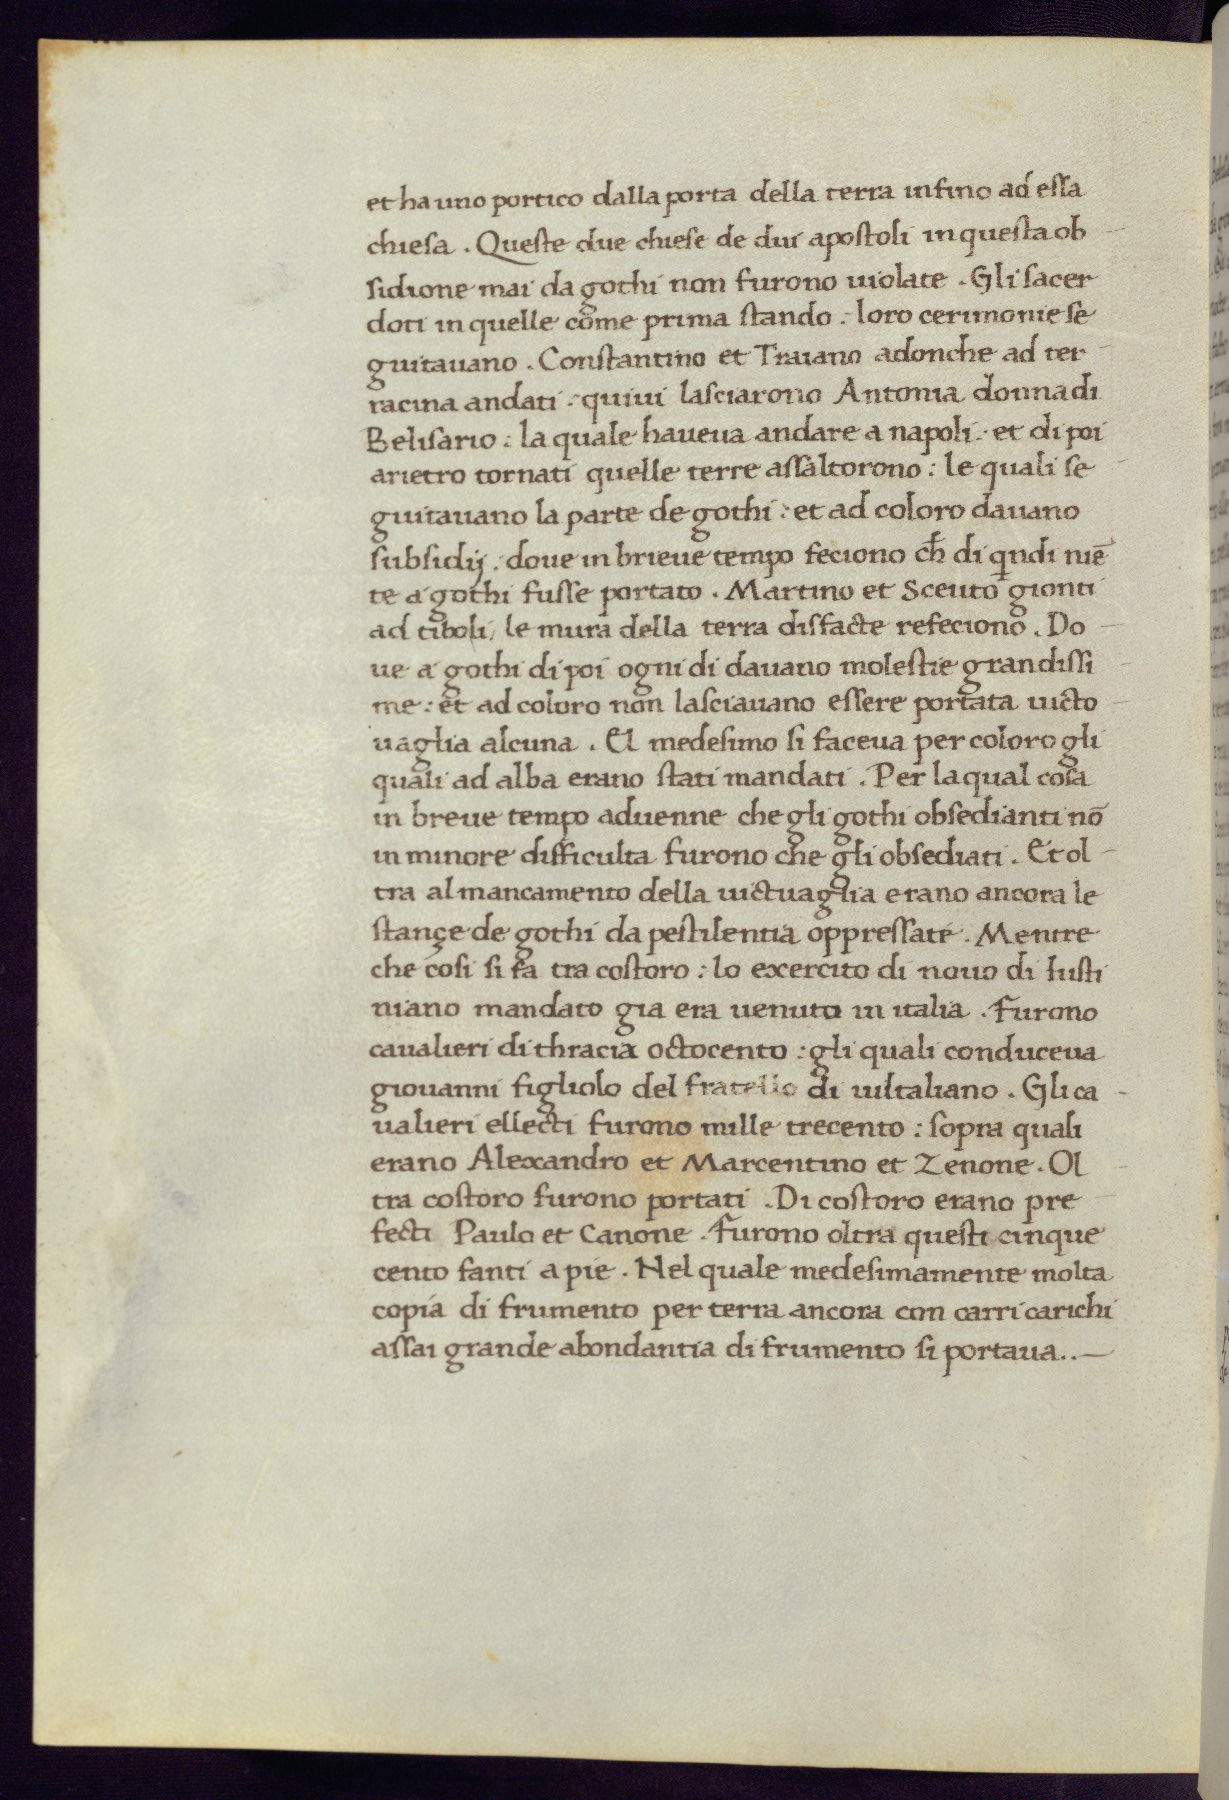 et ha uno portico dalla porta della terra infino ad essa
chiesa . Queste due chiese de dui apostoli in questa ob-
sidione mai da gothi non furono uiolate . Gli sacer
doti in quelle come prima stando : loro cerimonie se
guitauano . Constantino et Traiano adonche ad ter-
racina andati : quiui lasciarono Antonia donna di
Belisario : la quale haueua andare a napoli : et di poi
arietro tornati quelle terre assaltorono : le quali se-
guitauano la parte de gothi : et ad coloro dauano
subsidij : doue in brieue tempo feciono ch̄ di q̄ndi niē
te a gothi fusse portato . Martino et Sceuto gionti
ad tiboli, le mura della terra disfacte refeciono . Do-
ue a gothi di poi ogni di dauano molestie grandissi-
me : et ad coloro non lasciauano essere portata uicto-
uaglia alcuna . El medesimo si faceua per coloro gli
quali ad alba erano stati mandati . Per la qual cosa
in breue tempo aduenne che gli gothi obsedianti nō
in minore difficulta furono che gli obsediati . Et ol-
tra al mancamento della uictuaglia erano ancora le
stançe de gothi da pestilentia oppressate . Mentre
che cosi si fa tra costoro : lo exercito di nouo di Iusti
niano mandato gia era uenuto in italia . Furono
caualieri di thracia octocento : gli quali conduceua
giouanni figliolo del fratello di uiltaliano . Gli ca-
ualieri ellecti furono mille trecento : sopra quali
erano Alexandro et Marcentino et Zenone . Ol-
tra costoro furono portati . Di costoro erano pre
fecti Paulo et Canone . Furono oltra questi cinque
cento fanti a pie . Nel quale medesimamente molta
copia di frumento per terra ancora con carri carichi
assai grande abondantia di frumento si portaua..—